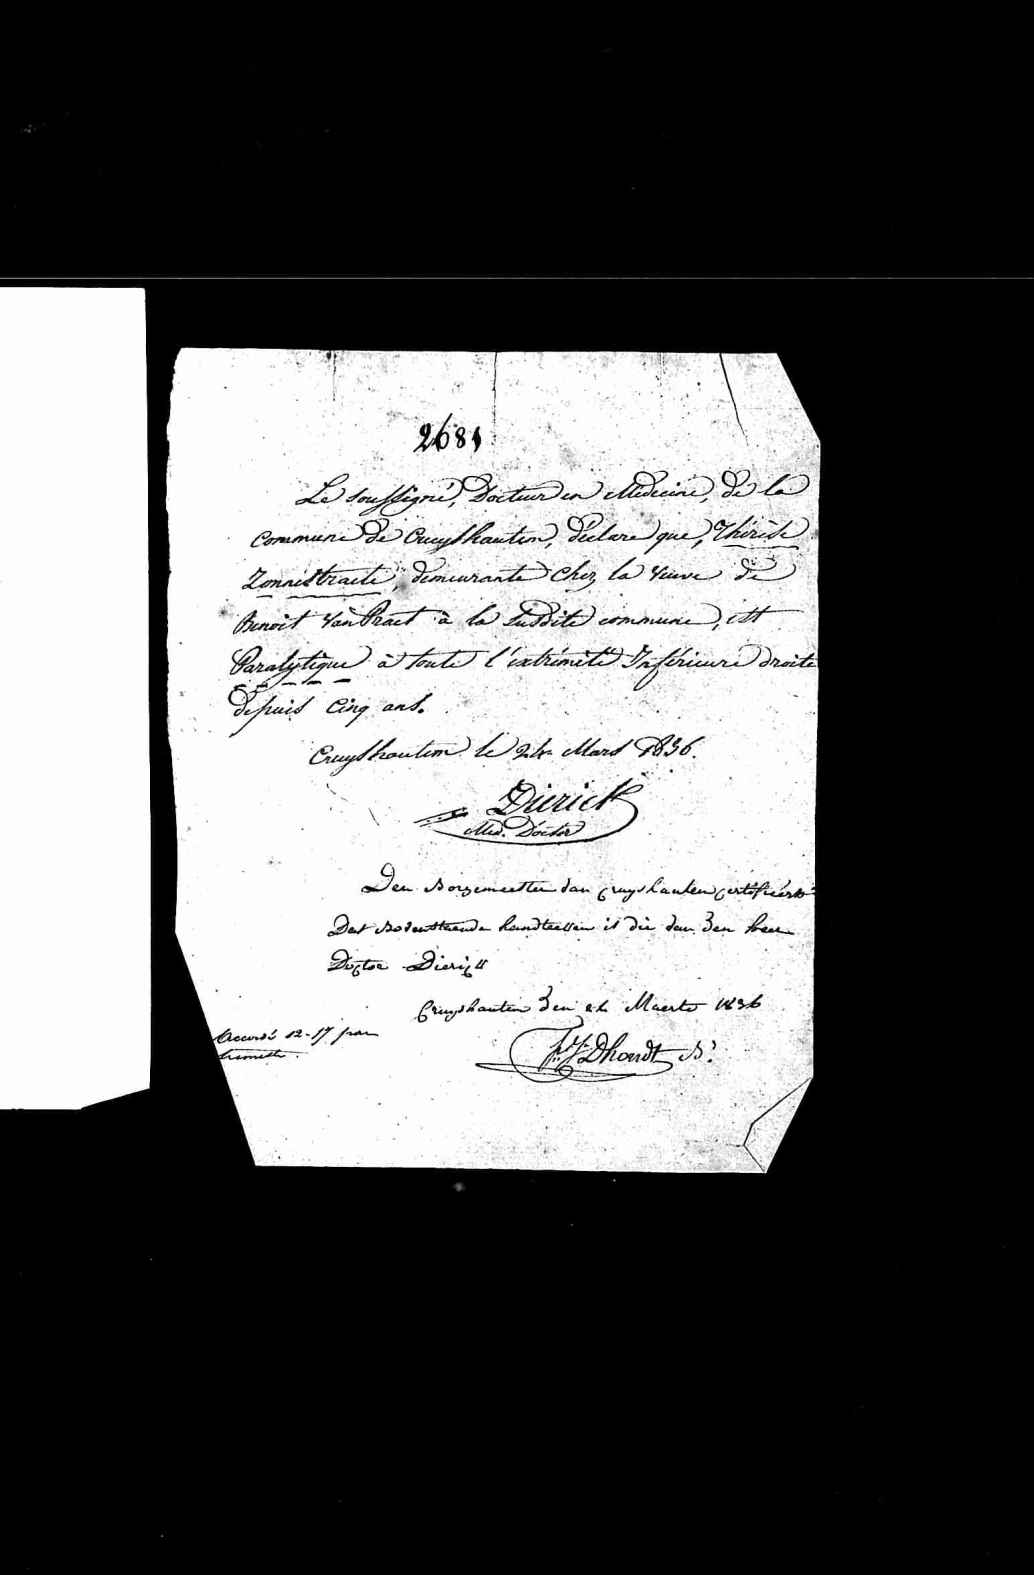 2681
Le soussigné, Docteur en Médecine, de la
Commune de Cruyshautem, déclare que, Thérèse
Zonnestraete, demeurante chez la veuve de
Benoit Van Praet à la susdite commune, est
Paralytique à toute l'extrémité Inférieure droite
depuis Cinq ans.
Cruyshautem le 24 Mars 1836.
Dierick
Med. Doctor
Den Borgemeester van Cruyshautem certificeert
Dat bovenstaende handteeken is die van den heer
Doctor Dierick
Cruyshautem den 24 Maerte 1836
Dhondt B.
Accordé 12-17 par
trimestre